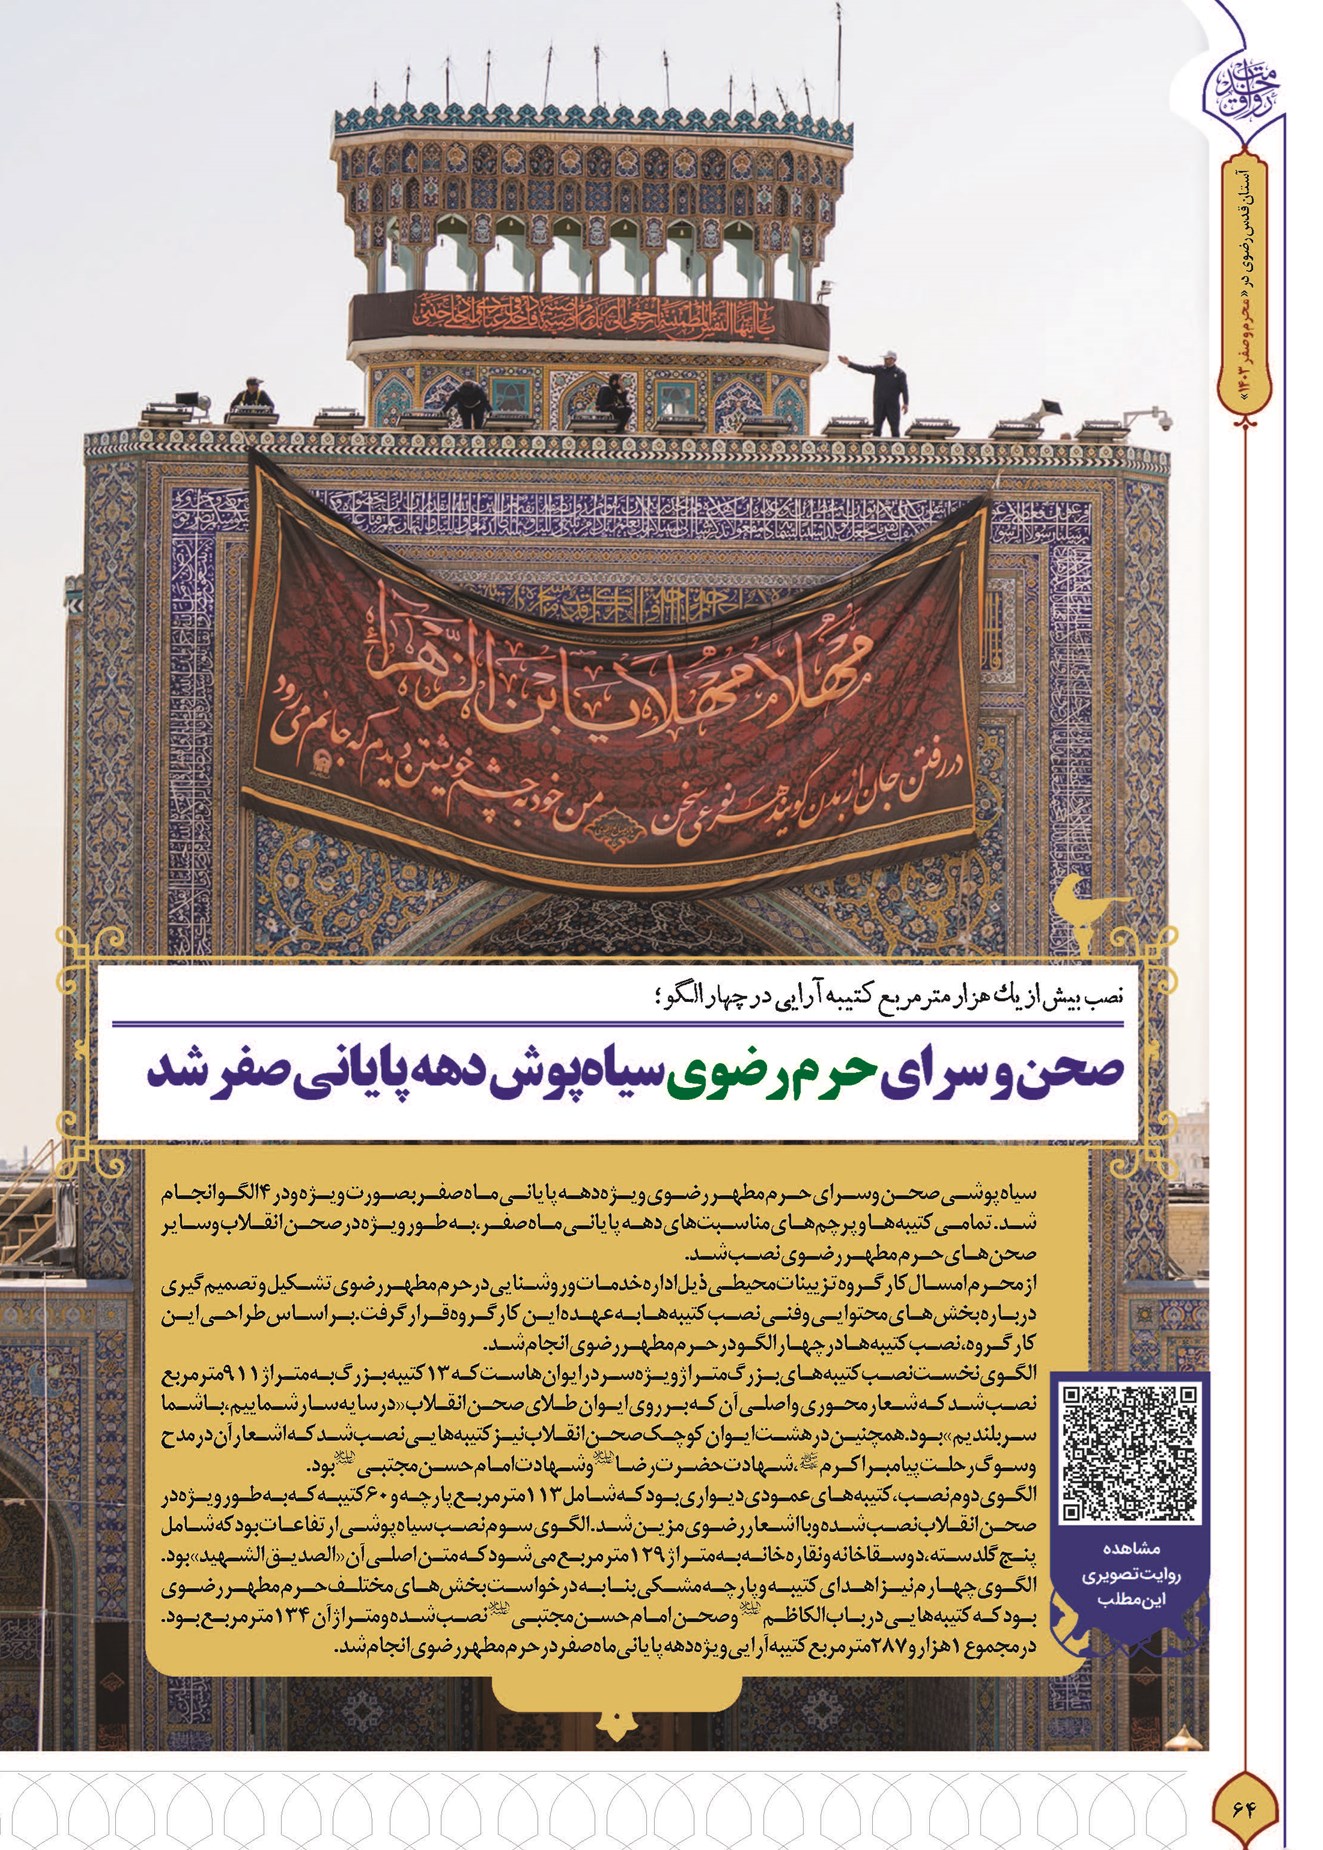 آستان قدس رضوی در «محرم و صفر ۱۴۰۳»
یا ایتها النفس المطمئنة ارجعی الی ربک راضیة مرضیة فادخلی فی عبادی وادخلی جنتی
مهلاً مهلا یابن الزهراء
در رفتن جان از بدن گویند هر نوعی سخن
من خود به چشم خویشتن دیدم که جانم می‌رود
نصب بیش از یک هزار متر مربع کتیبه آرایی در چهار الگو؛
صحن و سرای حرم رضوی سیاه‌پوش دهه پایانی صفر شد
سیاه پوشی صحن و سرای حرم مطهر رضوی ویژه دهه پایانی ماه صفر بصورت ویژه و در ۴ الگو انجام
شد. تمامی کتیبه‌ها و پرچم‌های مناسبت‌های دهه پایانی ماه صفر، به طور ویژه در صحن انقلاب و سایر
صحن‌های حرم مطهر رضوی نصب شد.
از محرم امسال کار گروه تزیینات محیطی ذیل اداره خدمات و روشنایی در حرم مطهر رضوی تشکیل و تصمیم گیری
درباره بخش‌های محتوایی و فنی نصب کتیبه‌ها به عهده این کار گروه قرار گرفت. بر اساس طراحی این
کار گروه، نصب کتیبه‌ها در چهار الگو در حرم مطهر رضوی انجام شد.
الگوی نخست نصب کتیبه‌های بزرگ متراژ ویژه سردر ایوان هاست که ۱۳ کتیبه بزرگ به متراژ ۹۱۱ متر مربع
نصب شد که شعار محوری و اصلی آن که بر روی ایوان طلای صحن انقلاب «در سایه سار شماییم، با شما
سربلندیم» بود. همچنین در هشت ایوان کوچک صحن انقلاب نیز کتیبه‌هایی نصب شد که اشعار آن در مدح
و سوگ رحلت پیامبر اکرم ﷺ، شهادت حضرت رضا علیه‌السلام و شهادت امام حسن مجتبی علیه‌السلام بود.
الگوی دوم نصب، کتیبه‌های عمودی دیواری بود که شامل ۱۱۳ متر مربع پارچه و ۶۰ کتیبه که به طور ویژه در
صحن انقلاب نصب شده و با اشعار رضوی مزین شد. الگوی سوم نصب سیاه پوشی ارتفاعات بود که شامل
پنج گلدسته، دو سقاخانه و نقاره خانه به متراژ ۱۲۹ متر مربع می‌شود که متن اصلی آن «الصدیق الشهید» بود.
الگوی چهارم نیز اهدای کتیبه و پارچه مشکی بنا به درخواست بخش‌های مختلف حرم مطهر رضوی
بود که کتیبه‌هایی در باب الکاظم علیه‌السلام و صحن امام حسن مجتبی علیه‌السلام نصب شده و متراژ آن ۱۳۴ متر مربع بود.
در مجموع ۱ هزار و ۲۸۷ متر مربع کتیبه آرایی ویژه دهه پایانی ماه صفر در حرم مطهر رضوی انجام شد.
مشاهده
روایت تصویری
این مطلب
۶۴